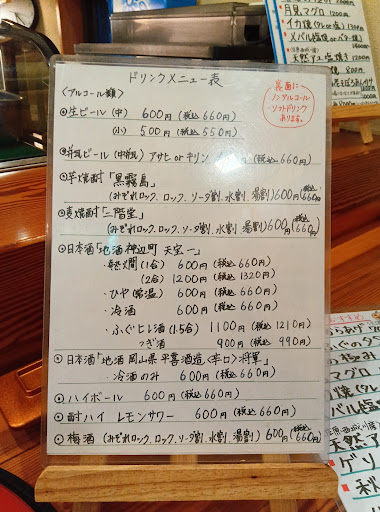 ドリンクメニュー表
〈アルコール類〉
裏面に
ノンアルコール
ソフトドリンク
あります。
生ビール (中) 600円 (税込 660円)
(小) 500円 (税込 550円)
瓶ビール (中瓶) アサヒ or キリン (税込 660円)
芋焼酎「黒霧島」
(みぞれロック、ロック、ソーダ割、水割、湯割) 600円 (税込 660円)
麦焼酎「二階堂」
(みぞれロック、ロック、ソーダ割、水割、湯割) 600円 (税込 660円)
日本酒「地酒 神辺町 天宝一」
・熱燗 (1合) 600円 (税込 660円)
(2合) 1200円 (税込 1320円)
・ひや (常温) 600円 (税込 660円)
・冷酒 600円 (税込 660円)
・ふぐヒレ酒 (1.5合) 1100円 (税込 1210円)
つぎ酒 900円 (税込 990円)
日本酒「地酒 岡山県 平喜酒造〈辛口〉将軍」
・冷酒のみ 600円 (税込 660円)
ハイボール 600円 (税込 660円)
酎ハイ レモンサワー 600円 (税込 660円)
梅酒 (みぞれロック、ロック、ソーダ割、水割、湯割) 600円 (税込 660円)
月見マグロ
イカ焼
メバル塩焼
天然アユ塩焼き
マグロ
メバル塩
天然ア